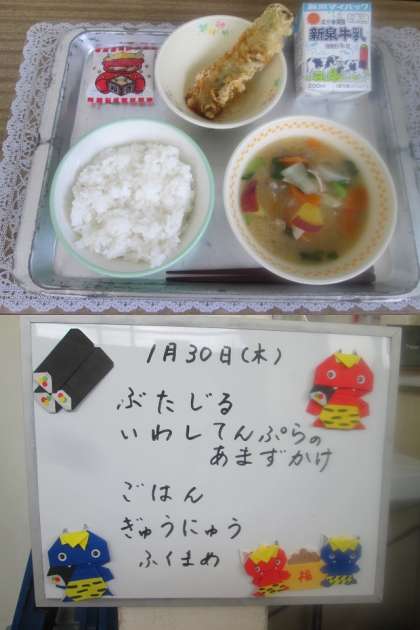 新泉牛乳
200ml
1月30日(木)
ぶたじる
いわしてんぷらの
あまずかけ
ごはん
ぎゅうにゅう
ふくまめ
福